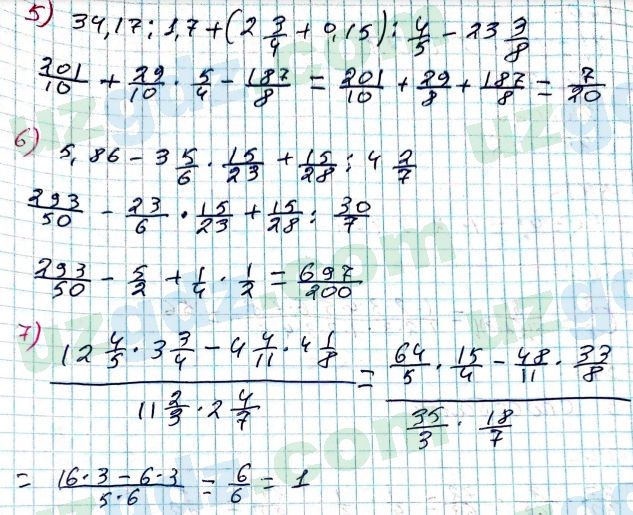 5) 34,17 : 1,7 + (2 3/4 + 0,15) : 4/5 - 23 3/8
201/10 + 29/10 · 5/4 - 187/8 = 201/10 + 29/8 + 187/8 = 7/20
6) 5,86 - 3 5/6 · 15/23 + 15/28 : 4 2/7
293/50 - 23/6 · 15/23 + 15/28 : 30/7
293/50 - 5/2 + 1/4 · 1/2 = 697/200
7) (12 4/5 · 3 3/4 - 4 4/11 · 4 1/8) / (11 2/3 · 2 4/7) = (64/5 · 15/4 - 48/11 · 33/8) / (35/3 · 18/7)
= (16·3 - 6·3) / (5·6) = 6/6 = 1
uzgdz.com